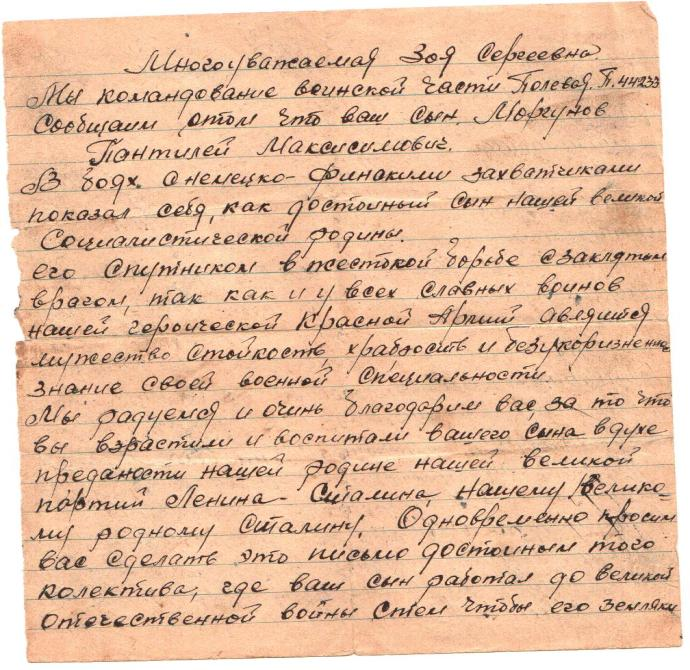 Многоуважаемая Зоя Сергеевна.
Мы командование воинской части Полевая. П. 44233
Сообщаим отом что ваш сын. Моргунов
Пантилей Максисимович.
В боях. снемецко-финскими захватчиками
показал себя, как достойный сын нашей великой
Социалистической родины.
его спутником в жестокой борьбе сзаклятым
врагом, так как и у всех славных воинов
нашей героической Красной Армий авляится
мужество стойкость храбрость и безукоризненное
знание своей военной специальности.
Мы радуемся и очинь благодарим вас, за то что
вы взрастили и воспитали вашего сына вдухе
преданости нашей родине нашей великой
партий Ленина-Сталина, нашему Велико-
му родному Сталину. Одновременно просим
вас сделать это письмо достойным того
колектива, где ваш сын работал до великой
отечественной войны стем чтобы его земляки